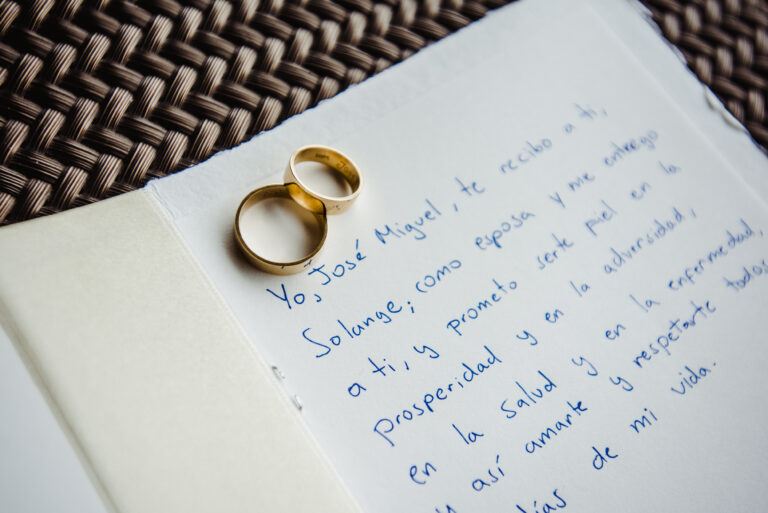 Yo, José Miguel, te recibo a ti,
Solange, como esposa y me entrego
a ti, y prometo serte piel en la
prosperidad y en la adversidad,
en la salud y en la enfermedad,
y así amarte y respetarte todos
días de mi vida.